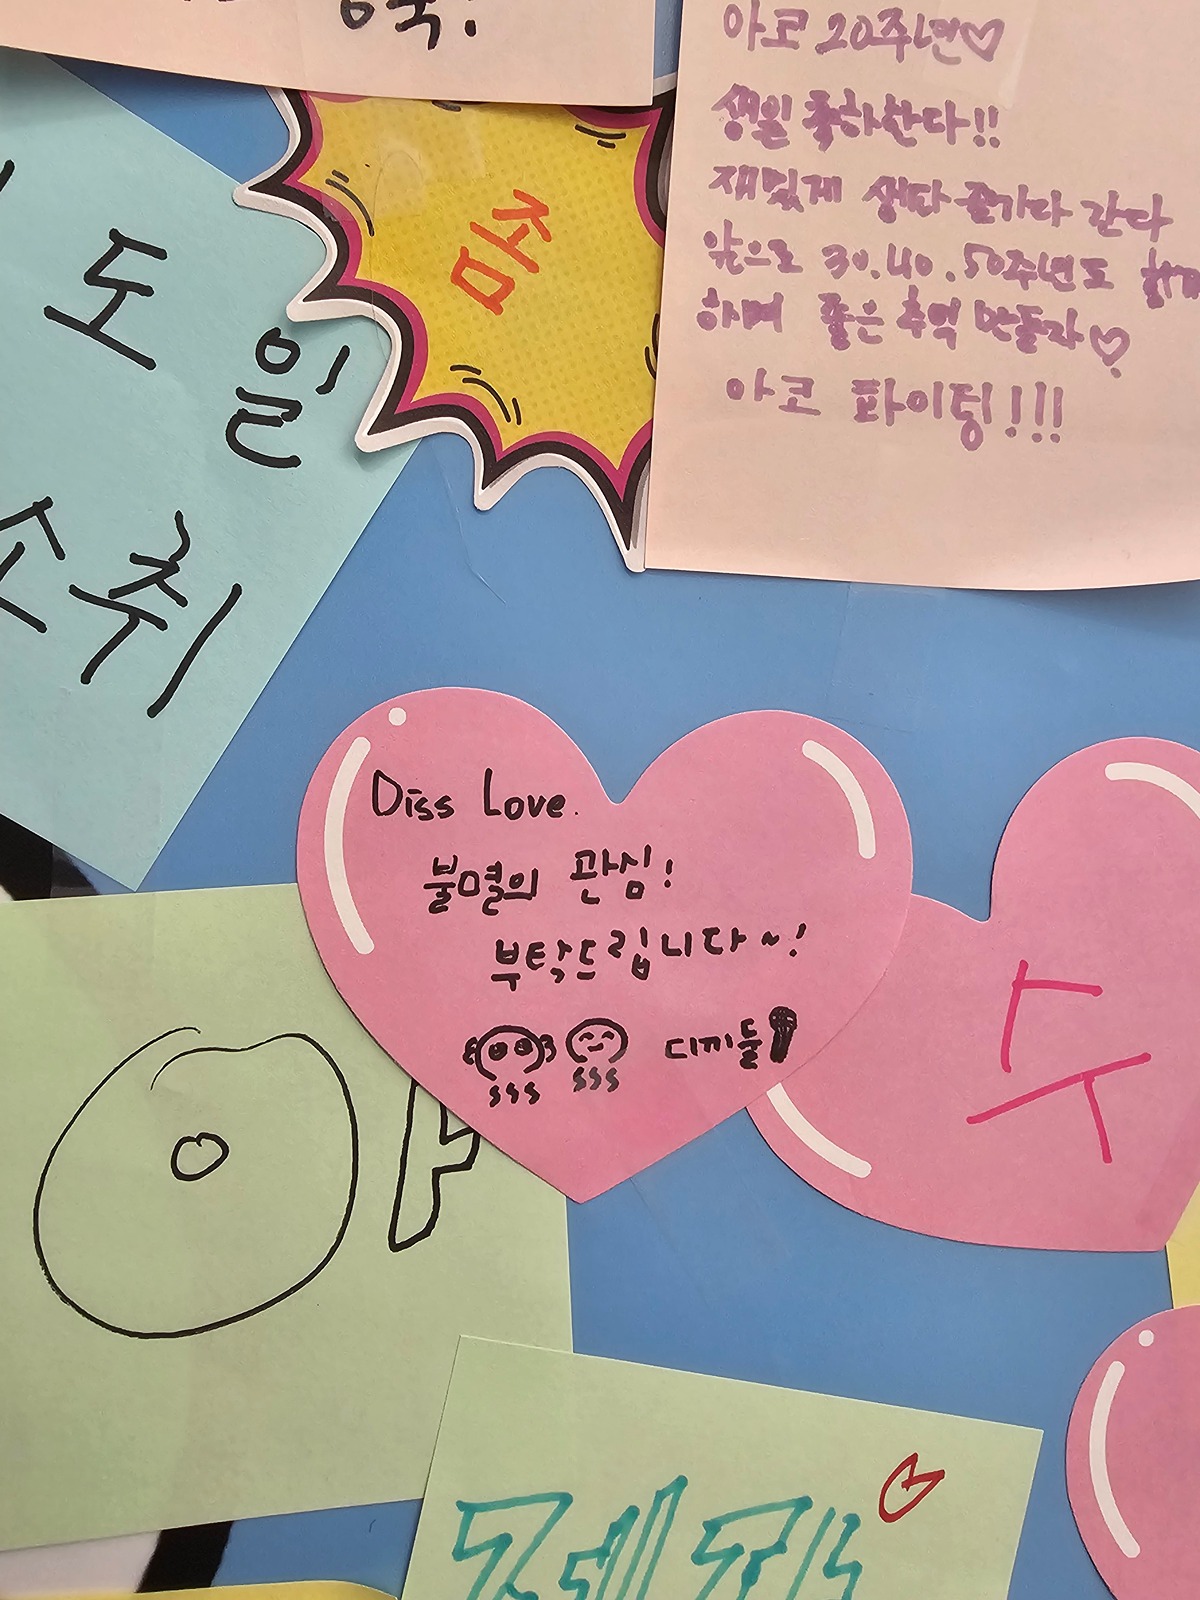 아코 20주년♡
생일 축하한다!!
재밌게 생다 즐기다 간다
앞으로 30.40.50주년도
하며 좋은 추억 만들자♡
아코 파이팅!!!
좀
도
일
소취
Diss Love.
불멸의 관심!
부탁드립니다~!
디끼둘
야